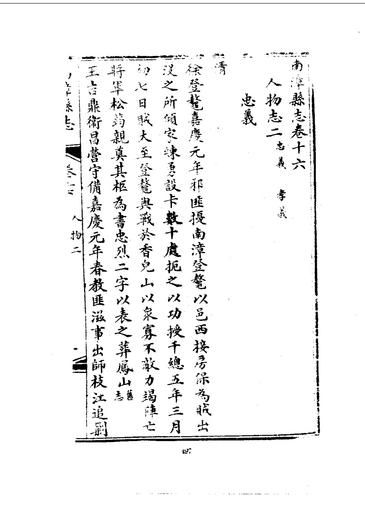 南漳縣志卷十六
人物志二 忠義 孝義
忠義
清
徐登鼇嘉慶元年邪匪擾南漳登鼇以邑西接房保為賊出
沒之所傾家竦勇設卡數十處扼之以功授千總五年三月
初七日賊大至登鼇與戰於香兒山以衆寡不敵力竭陣亡
將軍松筠親奠其柩為書忠烈二字以表之葬鳳山 舊志
王吉鼎衛昌營守備嘉慶元年春教匪滋事出師枝江追剿
南漳縣志 卷十六 人物二